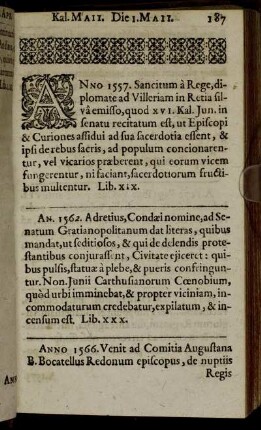 Kal. MAII. Die 1. MAII. 187
ANNO 1557. Sancitum à Rege, di-
plomate ad Villeriam in Retia sil-
vâ emisso, quod XVI. Kal. Jun. in
senatu recitatum est, ut Episcopi
& Curiones assidui ad sua sacerdotia essent, &
ipsi de rebus sacris, ad populum concionaren-
tur, vel vicarios præberent, qui eorum vicem
fungerentur, ni faciant, sacerdotiorum fructi-
bus multentur. Lib. xix.
AN. 1562. Adretius, Condæi nomine, ad Se-
natum Gratianopolitanum dat literas, quibus
mandat, ut seditiosos, & qui de delendis prote-
stantibus conjurassent, Civitate ejiceret: qui-
bus pulsis, statuæ à plebe, & pueris confringun-
tur. Non. Junii Carthusianorum Cœnobium,
quòd urbi imminebat, & propter viciniam, in-
commodaturum credebatur, expilatum, & in-
censum est. Lib. XXX.
ANNO 1566. Venit ad Comitia Augustana
B. Bocatellus Redonum episcopus, de nuptiis
Regis